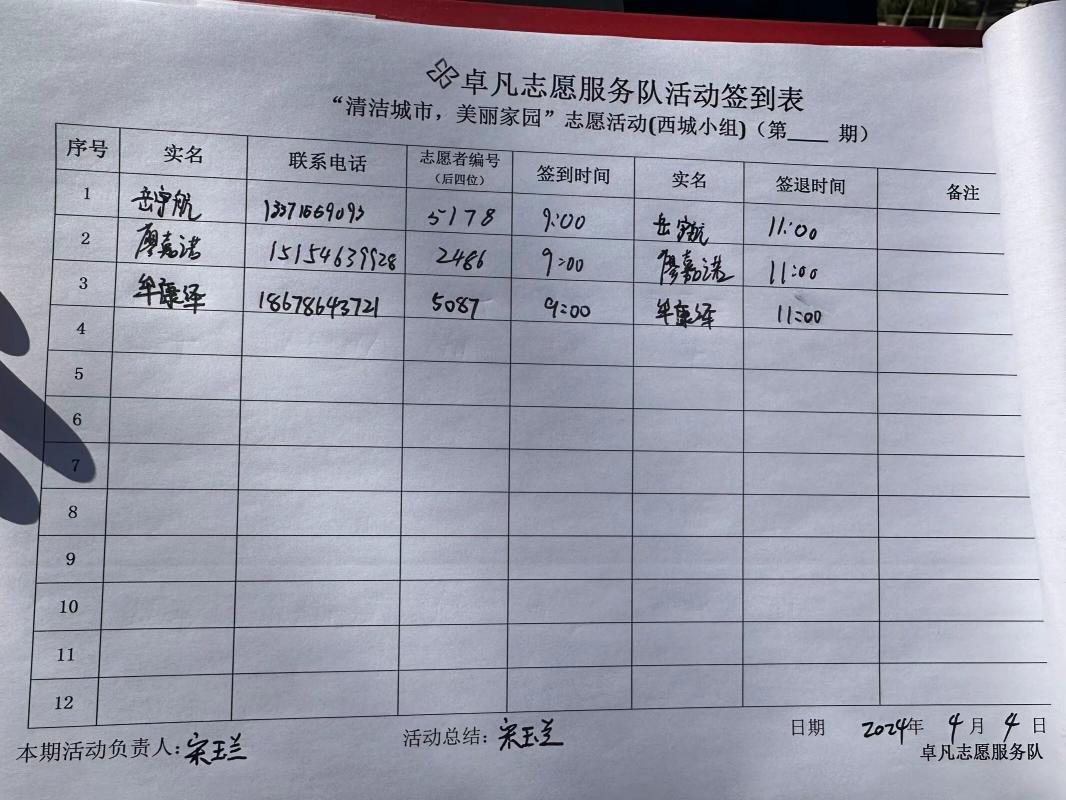 卓凡志愿服务队活动签到表
“清洁城市，美丽家园”志愿活动(西城小组)（第____ 期）
序号 实名 联系电话 志愿者编号（后四位） 签到时间 实名 签退时间 备注
1 岳宇航 13371669093 5178 9:00 岳宇航 11:00
2 廖嘉诺 15154639928 2486 9:00 廖嘉诺 11:00
3 牟康泽 18678643721 5087 9:00 牟康泽 11:00
4
5
6
7
8
9
10
11
12
本期活动负责人:宋玉兰 活动总结:宋玉兰 日期 2024年 4 月 4 日
卓凡志愿服务队